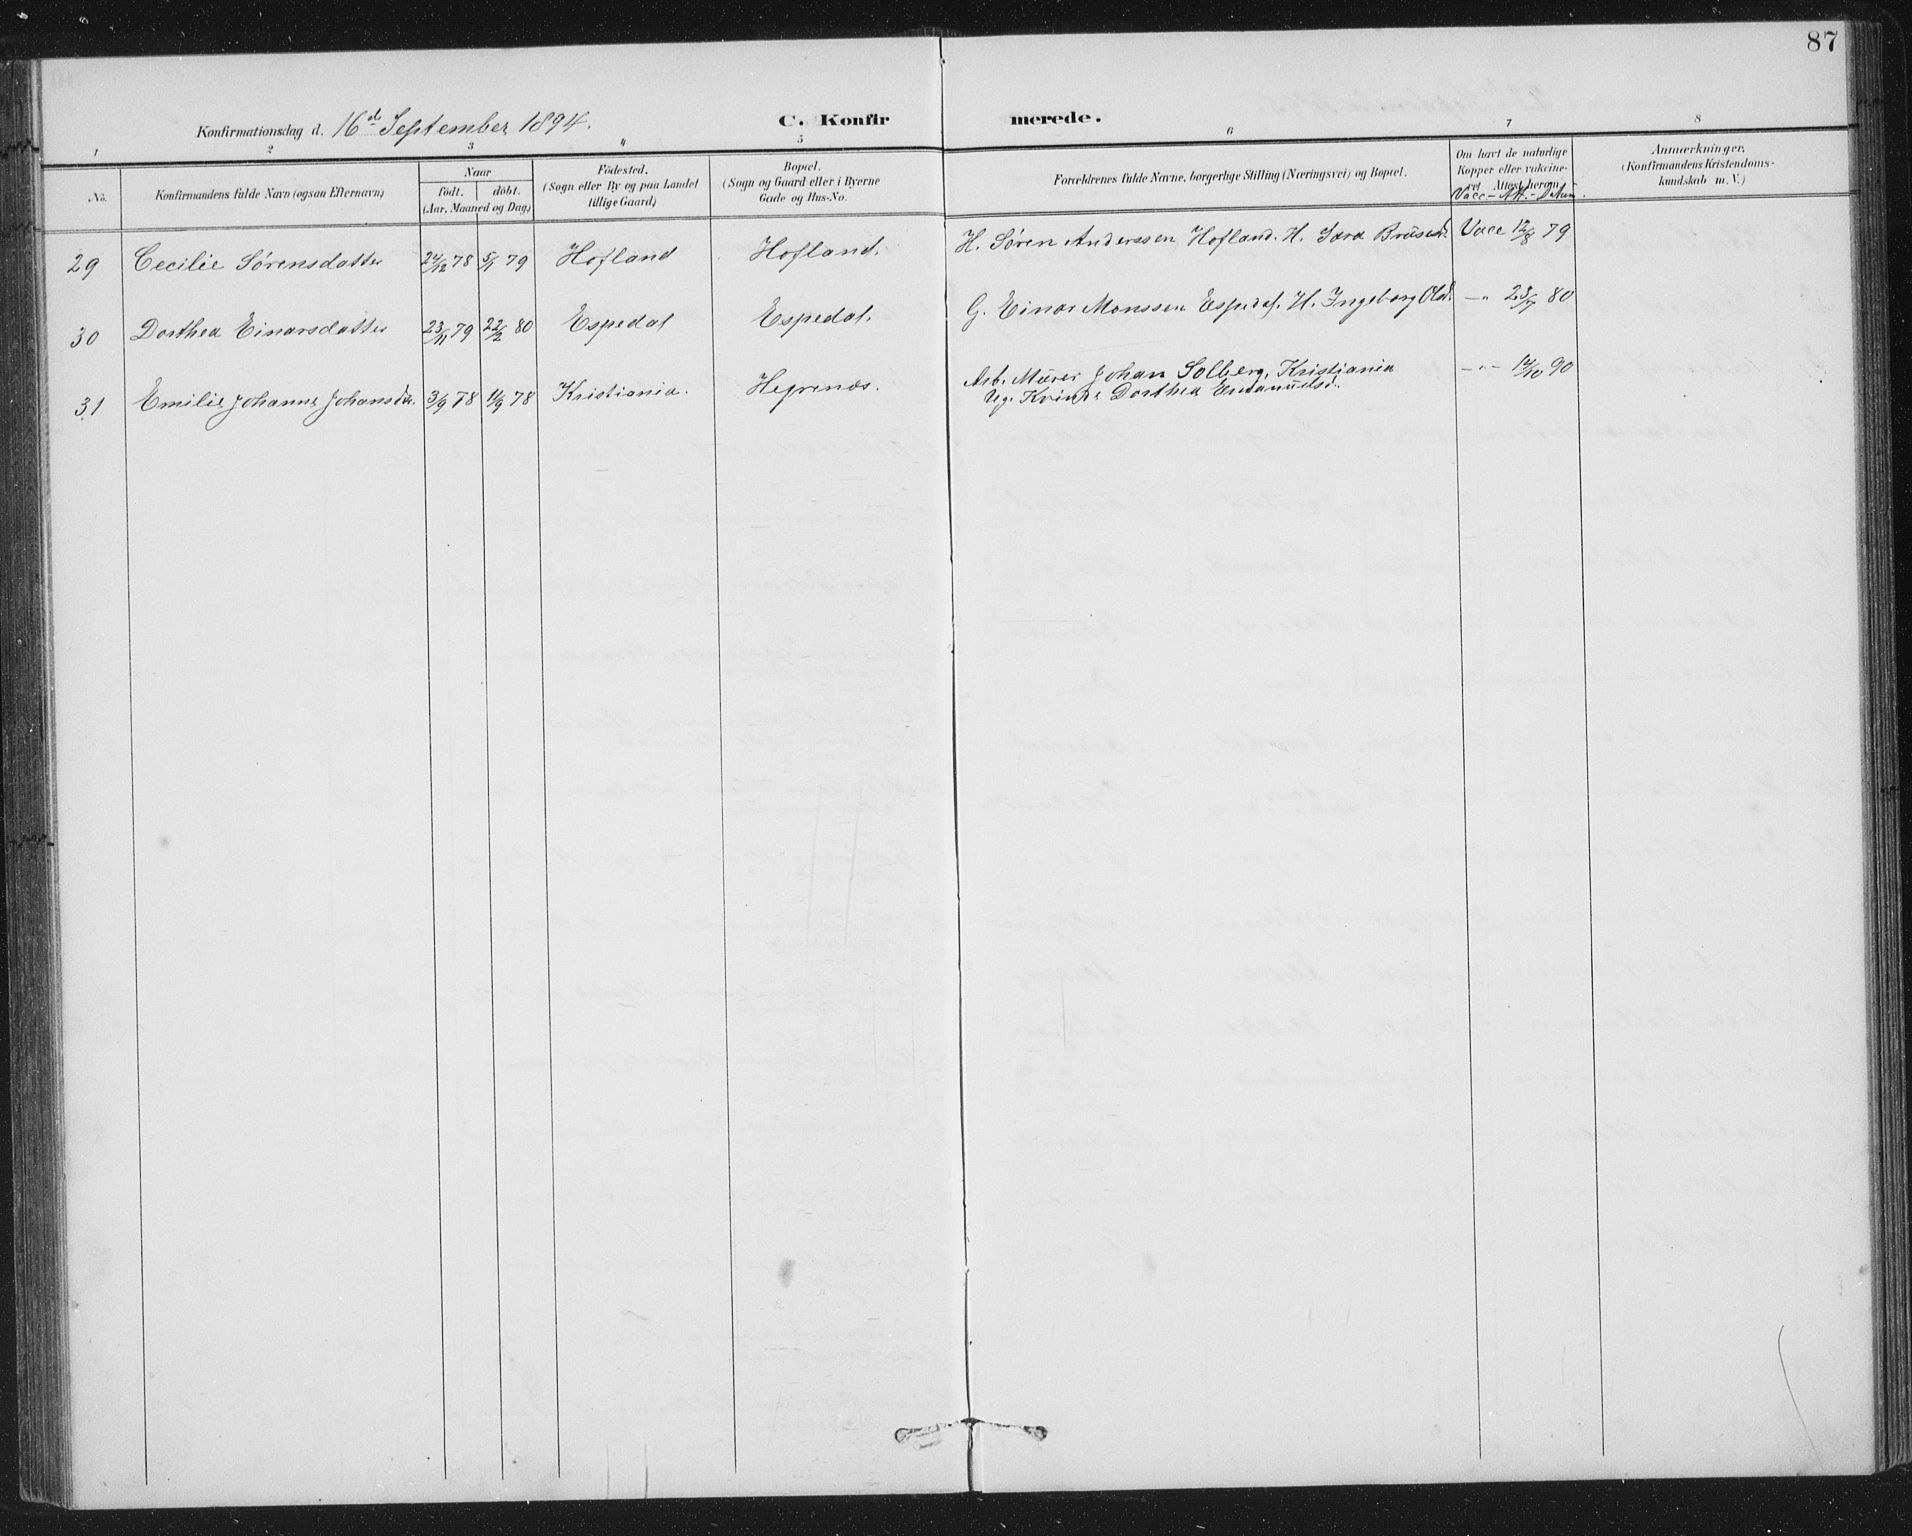 87
Konfirmationsdag d. 16d September 1894. C. Konfirmerede.
1 2 3 4 5 6 7 8
No.
Konfirmandens fulde Navn (ogsaa Efternavn)
Naar
født. døbt.
(Aar, Maaned og Dag)
Fødested.
(Sogn eller By og paa Landet
tillige Gaard)
Bopæl.
(Sogn og Gaard eller i Byerne
Gade og Hus-No.
Forældrenes fulde Navne, borgerlige Stilling (Næringsvei) og Bopæl.
Om havt de naturlige
Kopper eller vakcine-
ret Attest herom
Vacc - Att. - Datum.
Anmærkninger.
(Konfirmandens Kristendoms-
kundskab m. V.)
29 Cecilie Sørensdatter 24/12 78 5/1 79 Hofland Hofland. H. Søren Anderssen Hofland. H. Sara Vacc 12/8 79
30 Dorthea Einarsdatter 23/11 79 22/2 80 Espedal Espedal. G. Einar Monssen Esped. H. Ingeborg Olsd. -"- 23/7 80
31 Emilie Johanne Johansd. 3/9 78 1/9 78 Kristiania. Hegrenæs. Arb. Murer Johan Solberg, Kristiania -"- 14/10 90
Ug. Kvinde Dorthea Emanuelsd.